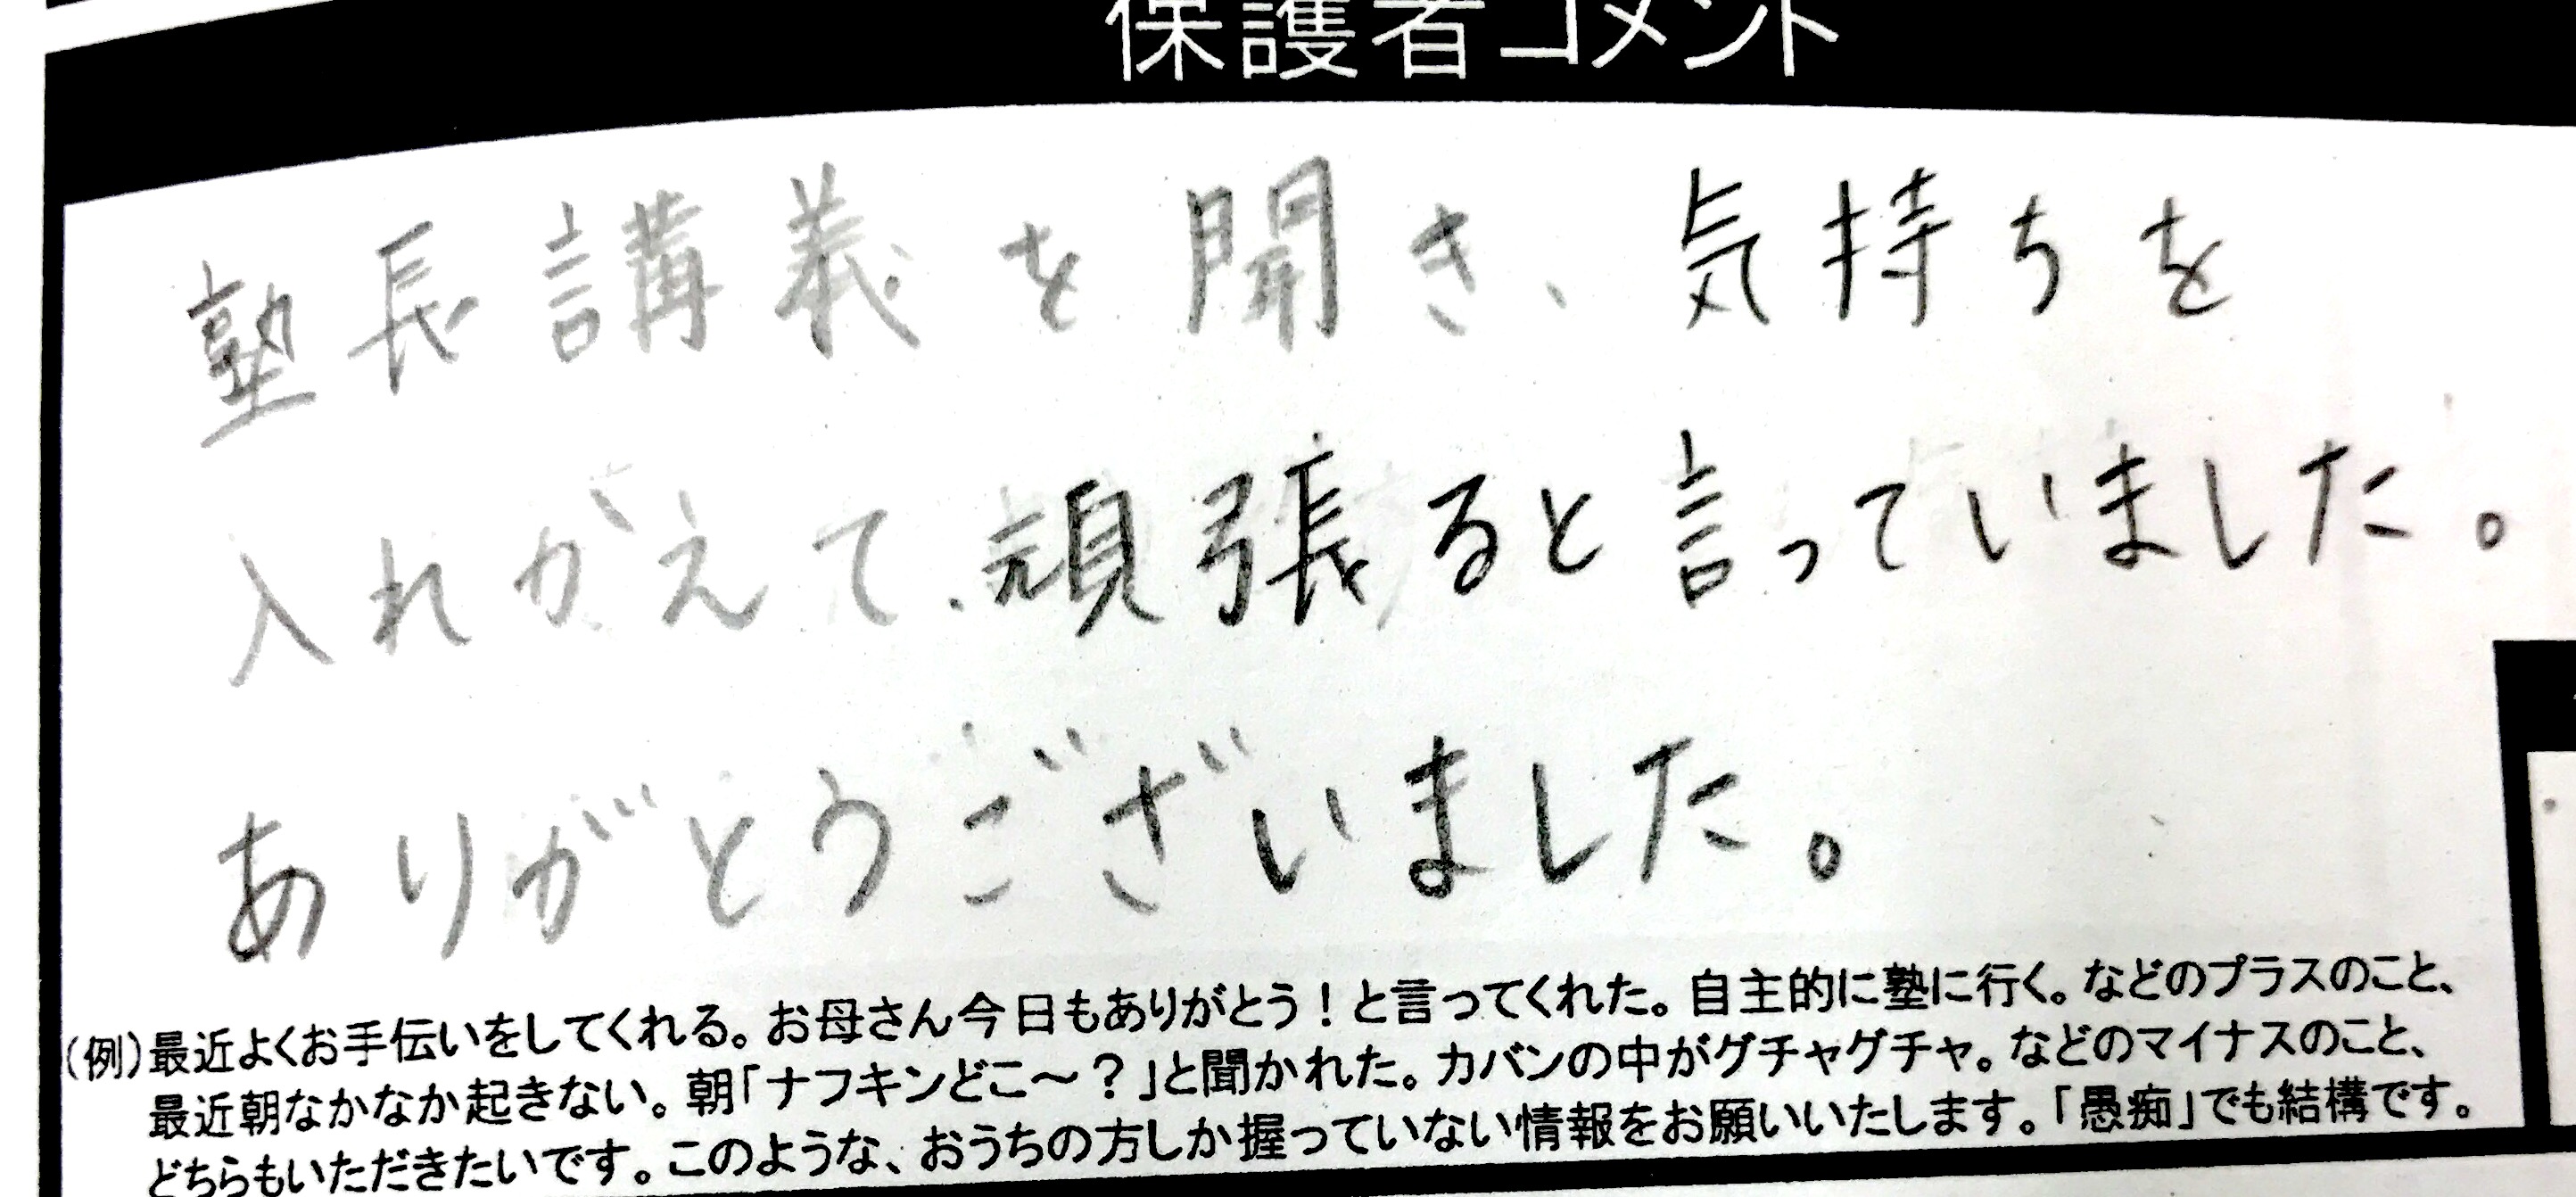 保護者コメント
塾長講義を聞き、気持ちを
入れがえて、頑張ると言っていました。
ありがとうございました。
(例)最近よくお手伝いをしてくれる。お母さん今日もありがとう!と言ってくれた。自主的に塾に行く。などのプラスのこと、
最近朝なかなか起きない。朝「ナフキンどこ～?」と聞かれた。カバンの中がグチャグチャ。などのマイナスのこと、
どちらもいただきたいです。このような、おうちの方しか握っていない情報をお願いいたします。「愚痴」でも結構です。